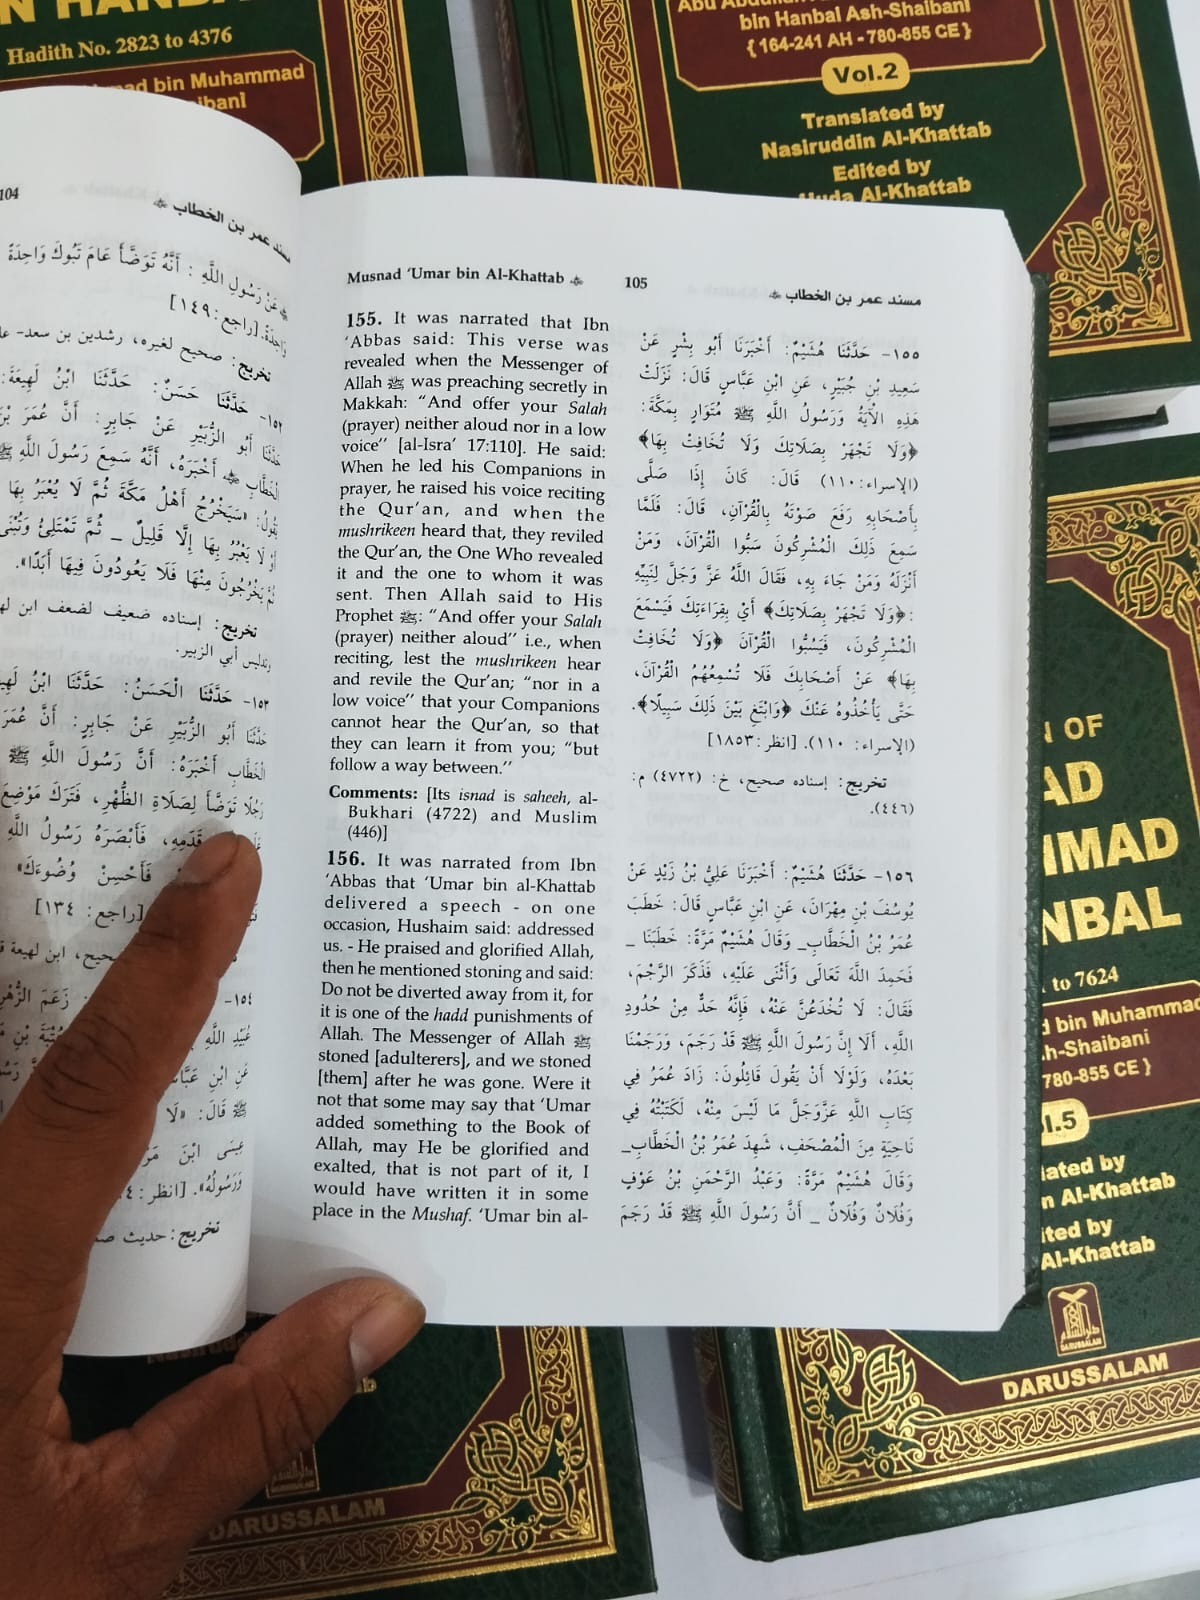 N HANBAL
Hadith No. 2823 to 4376
mad bin Muhammad
bin Hanbal Ash-Shaibani
{ 164-241 AH - 780-855 CE }
Vol.2
Translated by
Nasiruddin Al-Khattab
Edited by
Huda Al-Khattab
104
مسند عمر بن الخطاب ﷺ
عَنْ رَسُولِ اللَّهِ : أَنَّهُ تَوَضَّأَ عَامَ تَبُوكَ وَاحِدَةً
وَاحِدَةً. [راجع: ١٤٩]
تخريج: صحيح لغيره، رشدين بن سعد-
١٥٢- حَدَّثَنَا حَسَنٌ: حَدَّثَنَا ابْنُ لَهِيعَةَ:
حَدَّثَنَا أَبُو الزُّبَيْرِ عَنْ جَابِرٍ: أَنَّ عُمَرَ بْنَ
الْخَطَّابِ أَخْبَرَهُ، أَنَّهُ سَمِعَ رَسُولَ اللَّهِ ﷺ
يَقُولُ: «سَيَخْرُجُ أَهْلُ مَكَّةَ ثُمَّ لَا يُعْبَرُ بِهَا
أَوْ لَا يَعْبُرُ بِهَا إِلَّا قَلِيلٌ _ ثُمَّ تَمْتَلِئُ وَتُبْنَى
ثُمَّ يَخْرُجُونَ مِنْهَا فَلَا يَعُودُونَ فِيهَا أَبَدًا».
تخريج: إسناده ضعيف لضعف ابن
وتدليس أبي الزبير.
١٥٣- حَدَّثَنَا الْحَسَنُ: حَدَّثَنَا ابْنُ
حَدَّثَنَا أَبُو الزُّبَيْرِ عَنْ جَابِرٍ: أَنَّ عُمَرَ
الْخَطَّابِ أَخْبَرَهُ: أَنَّ رَسُولَ اللَّهِ ﷺ
رَجُلًا تَوَضَّأَ لِصَلَاةِ الظُّهْرِ، فَتَرَكَ مَوْضِعَ
قَدَمِهِ، فَأَبْصَرَهُ رَسُولُ اللَّهِ
فَأَحْسِنْ وُضُوءَكَ»
[راجع: ١٣٤]
ابن لهيعة
١٥٤- زَعَمَ الزُّهْرِ
عُبَيْدِ اللَّهِ
عَنِ ابْنِ
ﷺ قَالَ: «لَا
عِيسَى ابْنَ
وَرَسُولُهُ». [انظر:
تخريج: حديث
Musnad ‘Umar bin Al-Khattab
105
مسند عمر بن الخطاب
155. It was narrated that Ibn
‘Abbas said: This verse was
revealed when the Messenger of
Allah ﷺ was preaching secretly in
Makkah: “And offer your Salah
(prayer) neither aloud nor in a low
voice” [al-Isra’ 17:110]. He said:
When he led his Companions in
prayer, he raised his voice reciting
the Qur’an, and when the
mushrikeen heard that, they reviled
the Qur’an, the One Who revealed
it and the one to whom it was
sent. Then Allah said to His
Prophet ﷺ: “And offer your Salah
(prayer) neither aloud” i.e., when
reciting, lest the mushrikeen hear
and revile the Qur’an; “nor in a
low voice” that your Companions
cannot hear the Qur’an, so that
they can learn it from you; “but
follow a way between.”
Comments: [Its isnad is saheeh, al-
Bukhari (4722) and Muslim
(446)]
156. It was narrated from Ibn
‘Abbas that ‘Umar bin al-Khattab
delivered a speech - on one
occasion, Hushaim said: addressed
us. - He praised and glorified Allah,
then he mentioned stoning and said:
Do not be diverted away from it, for
it is one of the hadd punishments of
Allah. The Messenger of Allah ﷺ
stoned [adulterers], and we stoned
[them] after he was gone. Were it
not that some may say that ‘Umar
added something to the Book of
Allah, may He be glorified and
exalted, that is not part of it, I
would have written it in some
place in the Mushaf. ‘Umar bin al-
١٥٥- حَدَّثَنَا هُشَيْمٌ: أَخْبَرَنَا أَبُو بِشْرٍ عَنْ
سَعِيدِ بْنِ جُبَيْرٍ، عَنِ ابْنِ عَبَّاسٍ قَالَ: نَزَلَتْ
هَذِهِ الْآيَةُ وَرَسُولُ اللَّهِ ﷺ مُتَوَارٍ بِمَكَّةَ:
﴿وَلَا تَجْهَرْ بِصَلَاتِكَ وَلَا تُخَافِتْ بِهَا﴾
(الإسراء: ١١٠) قَالَ: كَانَ إِذَا صَلَّى
بِأَصْحَابِهِ رَفَعَ صَوْتَهُ بِالْقُرْآنِ، قَالَ: فَلَمَّا
سَمِعَ ذَلِكَ الْمُشْرِكُونَ سَبُّوا الْقُرْآنَ، وَمَنْ
أَنْزَلَهُ وَمَنْ جَاءَ بِهِ، فَقَالَ اللَّهُ عَزَّ وَجَلَّ لِنَبِيِّهِ
: ﴿وَلَا تَجْهَرْ بِصَلَاتِكَ﴾ أَيْ بِقِرَاءَتِكَ فَيَسْمَعَ
الْمُشْرِكُونَ، فَيَسُبُّوا الْقُرْآنَ ﴿وَلَا تُخَافِتْ
بِهَا﴾ عَنْ أَصْحَابِكَ فَلَا تُسْمِعُهُمُ الْقُرْآنَ،
حَتَّى يَأْخُذُوهُ عَنْكَ ﴿وَابْتَغِ بَيْنَ ذَلِكَ سَبِيلًا﴾.
(الإسراء: ١١٠). [انظر: ١٨٥٣]
تخريج: إسناده صحيح، خ: (٤٧٢٢) م:
(٤٤٦).
١٥٦- حَدَّثَنَا هُشَيْمٌ: أَخْبَرَنَا عَلِيُّ بْنُ زَيْدٍ عَنْ
يُوسُفَ بْنِ مِهْرَانَ، عَنِ ابْنِ عَبَّاسٍ قَالَ: خَطَبَ
عُمَرُ بْنُ الْخَطَّابِ_ وَقَالَ هُشَيْمٌ مَرَّةً: خَطَبَنَا _
فَحَمِدَ اللَّهَ تَعَالَى وَأَثْنَى عَلَيْهِ، فَذَكَرَ الرَّجْمَ،
فَقَالَ: لَا تُخْدَعُنَّ عَنْهُ، فَإِنَّهُ حَدٌّ مِنْ حُدُودِ
اللَّهِ، أَلَا إِنَّ رَسُولَ اللَّهِ ﷺ قَدْ رَجَمَ، وَرَجَمْنَا
بَعْدَهُ، وَلَوْلَا أَنْ يَقُولَ قَائِلُونَ: زَادَ عُمَرُ فِي
كِتَابِ اللَّهِ عَزَّوَجَلَّ مَا لَيْسَ مِنْهُ، لَكَتَبْتُهُ فِي
نَاحِيَةٍ مِنَ الْمُصْحَفِ، شَهِدَ عُمَرُ بْنُ الْخَطَّابِ_
وَقَالَ هُشَيْمٌ مَرَّةً: وَعَبْدُ الرَّحْمَنِ بْنُ عَوْفٍ
وَفُلَانٌ وَفُلَانٌ _ أَنَّ رَسُولَ اللَّهِ ﷺ قَدْ رَجَمَ
N OF
AD
MMAD
NBAL
to 7624
d bin Muhammad
sh-Shaibani
780-855 CE }
l.5
lated by
n Al-Khattab
ited by
Al-Khattab
دار السلام
DARUSSALAM
DARUSSALAM
DARUSSALAM